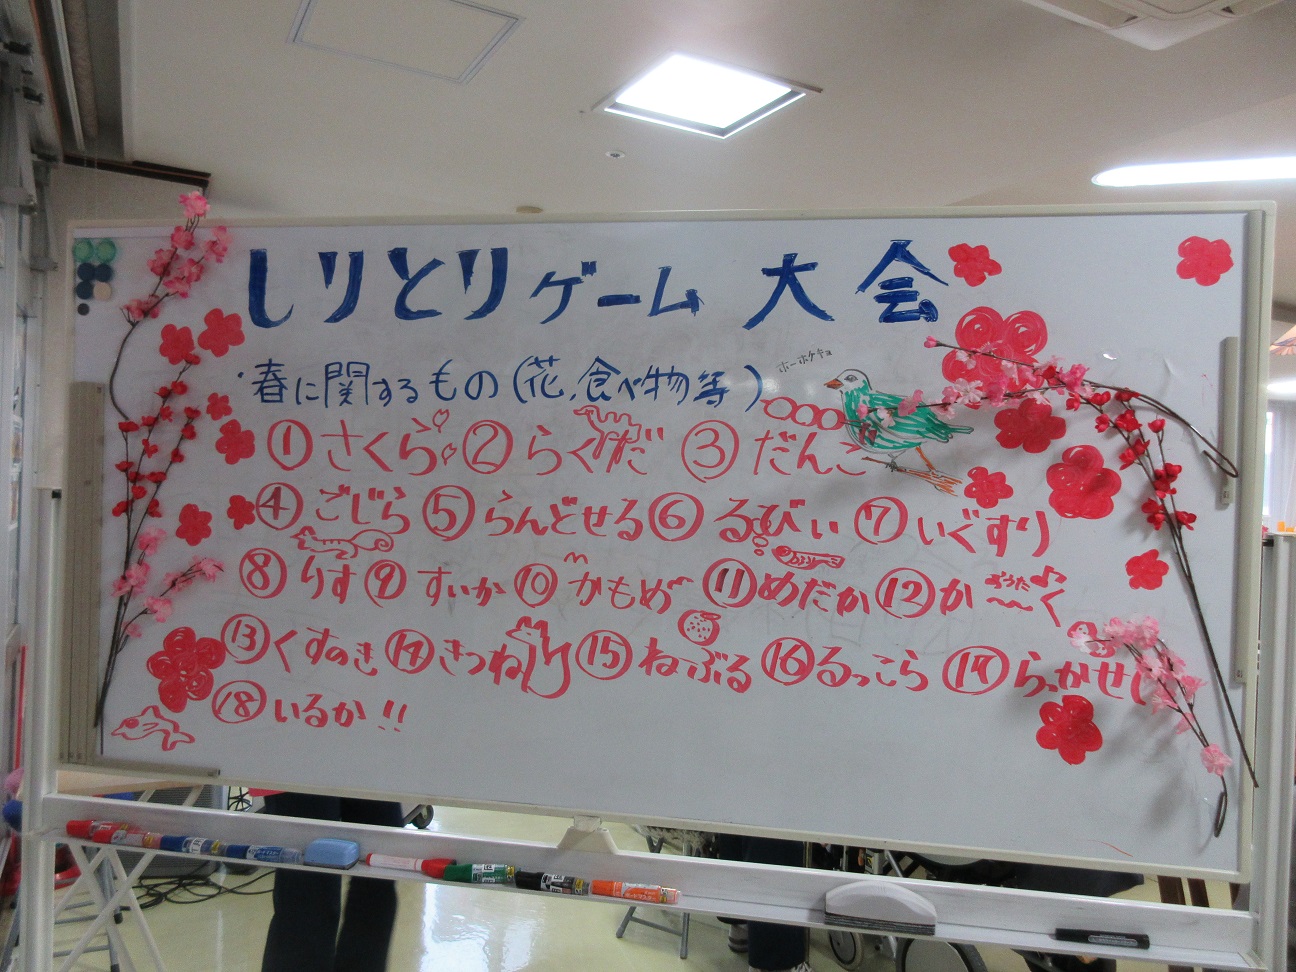 しりとりゲーム 大会
・春に関するもの(花、食べ物等)
ホーホケキョ
①さくら ②らくだ ③だんご
④ごじら ⑤らんどせる ⑥るびぃ ⑦いぐすり
⑧りす ⑨すいか ⑩かもめ ⑪めだか ⑫か〜く
おうた♪
⑬くすのき ⑭きつね ⑮ねぶる ⑯るっこら ⑰らっかせい
⑱いるか!!